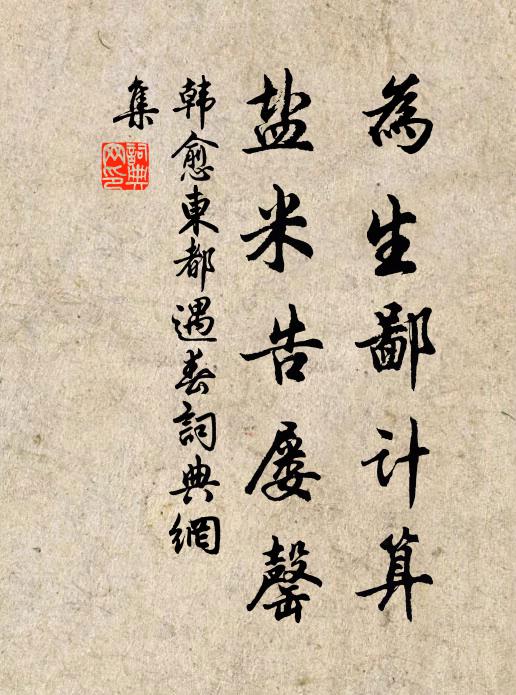 為生鄙计算
盐米告屡罄
韩愈東都遇春詞典網
集
詞典
网印